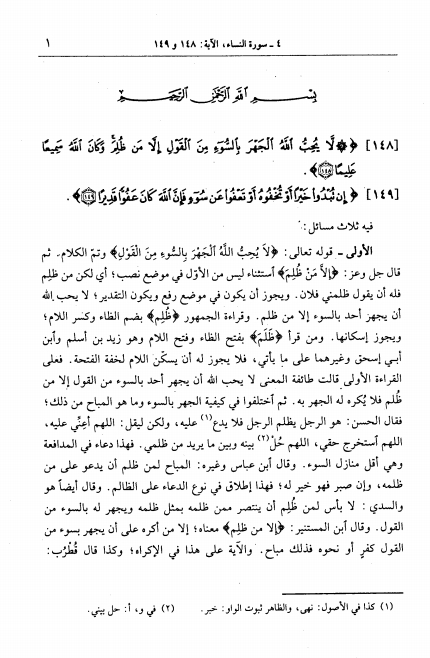 ٤ ـ سورة النساء، الآية: ١٤٨ و ١٤٩
١
بِسْمِ اللَّهِ الرَّحْمَٰنِ الرَّحِيمِ
[١٤٨] ﴿۞ لَّا يُحِبُّ اللَّهُ الْجَهْرَ بِالسُّوٓءِ مِنَ الْقَوْلِ إِلَّا مَن ظُلِمَ وَكَانَ اللَّهُ سَمِيعًا
عَلِيمًا ﴿١٤٨﴾﴾.
[١٤٩] ﴿إِن تُبْدُوا خَيْرًا أَوْ تُخْفُوهُ أَوْ تَعْفُوا عَن سُوٓءٍ فَإِنَّ اللَّهَ كَانَ عَفُوًّا قَدِيرًا ﴿١٤٩﴾﴾.
فيه ثلاث مسائل:
الأولى ـ قوله تعالى: ﴿لاَ يُحِبُّ اللَّهُ الْجَهْرَ بِالسُّوءِ مِنَ الْقَوْلِ﴾ وتم الكلام. ثم
قال جل وعز: ﴿إلاَّ مَنْ ظُلِمَ﴾ استثناء ليس من الأوّل في موضع نصب؛ أي لكن من ظلِم
فله أن يقول ظلمني فلان. ويجوز أن يكون في موضع رفع ويكون التقدير؛ لا يحب الله
أن يجهر أحد بالسوء إلا من ظلم. وقراءة الجمهور ﴿ظُلِمَ﴾ بضم الظاء وكسر اللام؛
ويجوز إسكانها. ومن قرأ ﴿ظَلَمَ﴾ بفتح الظاء وفتح اللام وهو زيد بن أسلم وأبن
أبي إسحق وغيرهما على ما يأتي، فلا يجوز له أن يسكّن اللام لخفة الفتحة. فعلى
القراءة الأولى قالت طائفة المعنى لا يحب الله أن يجهر أحد بالسوء من القول إلا من
ظُلم فلا يُكره له الجهر به. ثم أختلفوا في كيفية الجهر بالسوء وما هو المباح من ذلك؛
فقال الحسن: هو الرجل يظلم الرجل فلا يدع(١) عليه، ولكن ليقل: اللهم أعنِّي عليه،
اللهم أستخرج حقي، اللهم حُلْ(٢) بينه وبين ما يريد من ظلمي. فهذا دعاء في المدافعة
وهي أقل منازل السوء. وقال أبن عباس وغيره: المباح لمن ظلم أن يدعو على من
ظلمه، وإن صبر فهو خير له؛ فهذا إطلاق في نوع الدعاء على الظالم. وقال أيضاً هو
والسدي: لا بأس لمن ظُلِم أن ينتصر ممن ظلمه بمثل ظلمه ويجهر له بالسوء من
القول. وقال أبن المستنير: ﴿إلا من ظلم﴾ معناه؛ إلا من أكره على أن يجهر بسوء من
القول كفرٍ أو نحوه فذلك مباح. والآية على هذا في الإكراه؛ وكذا قال قُطْرُب:
(١) كذا في الأصول: نهى، والظاهر ثبوت الواو: خبر. (٢) في و، أ: حل بيني.